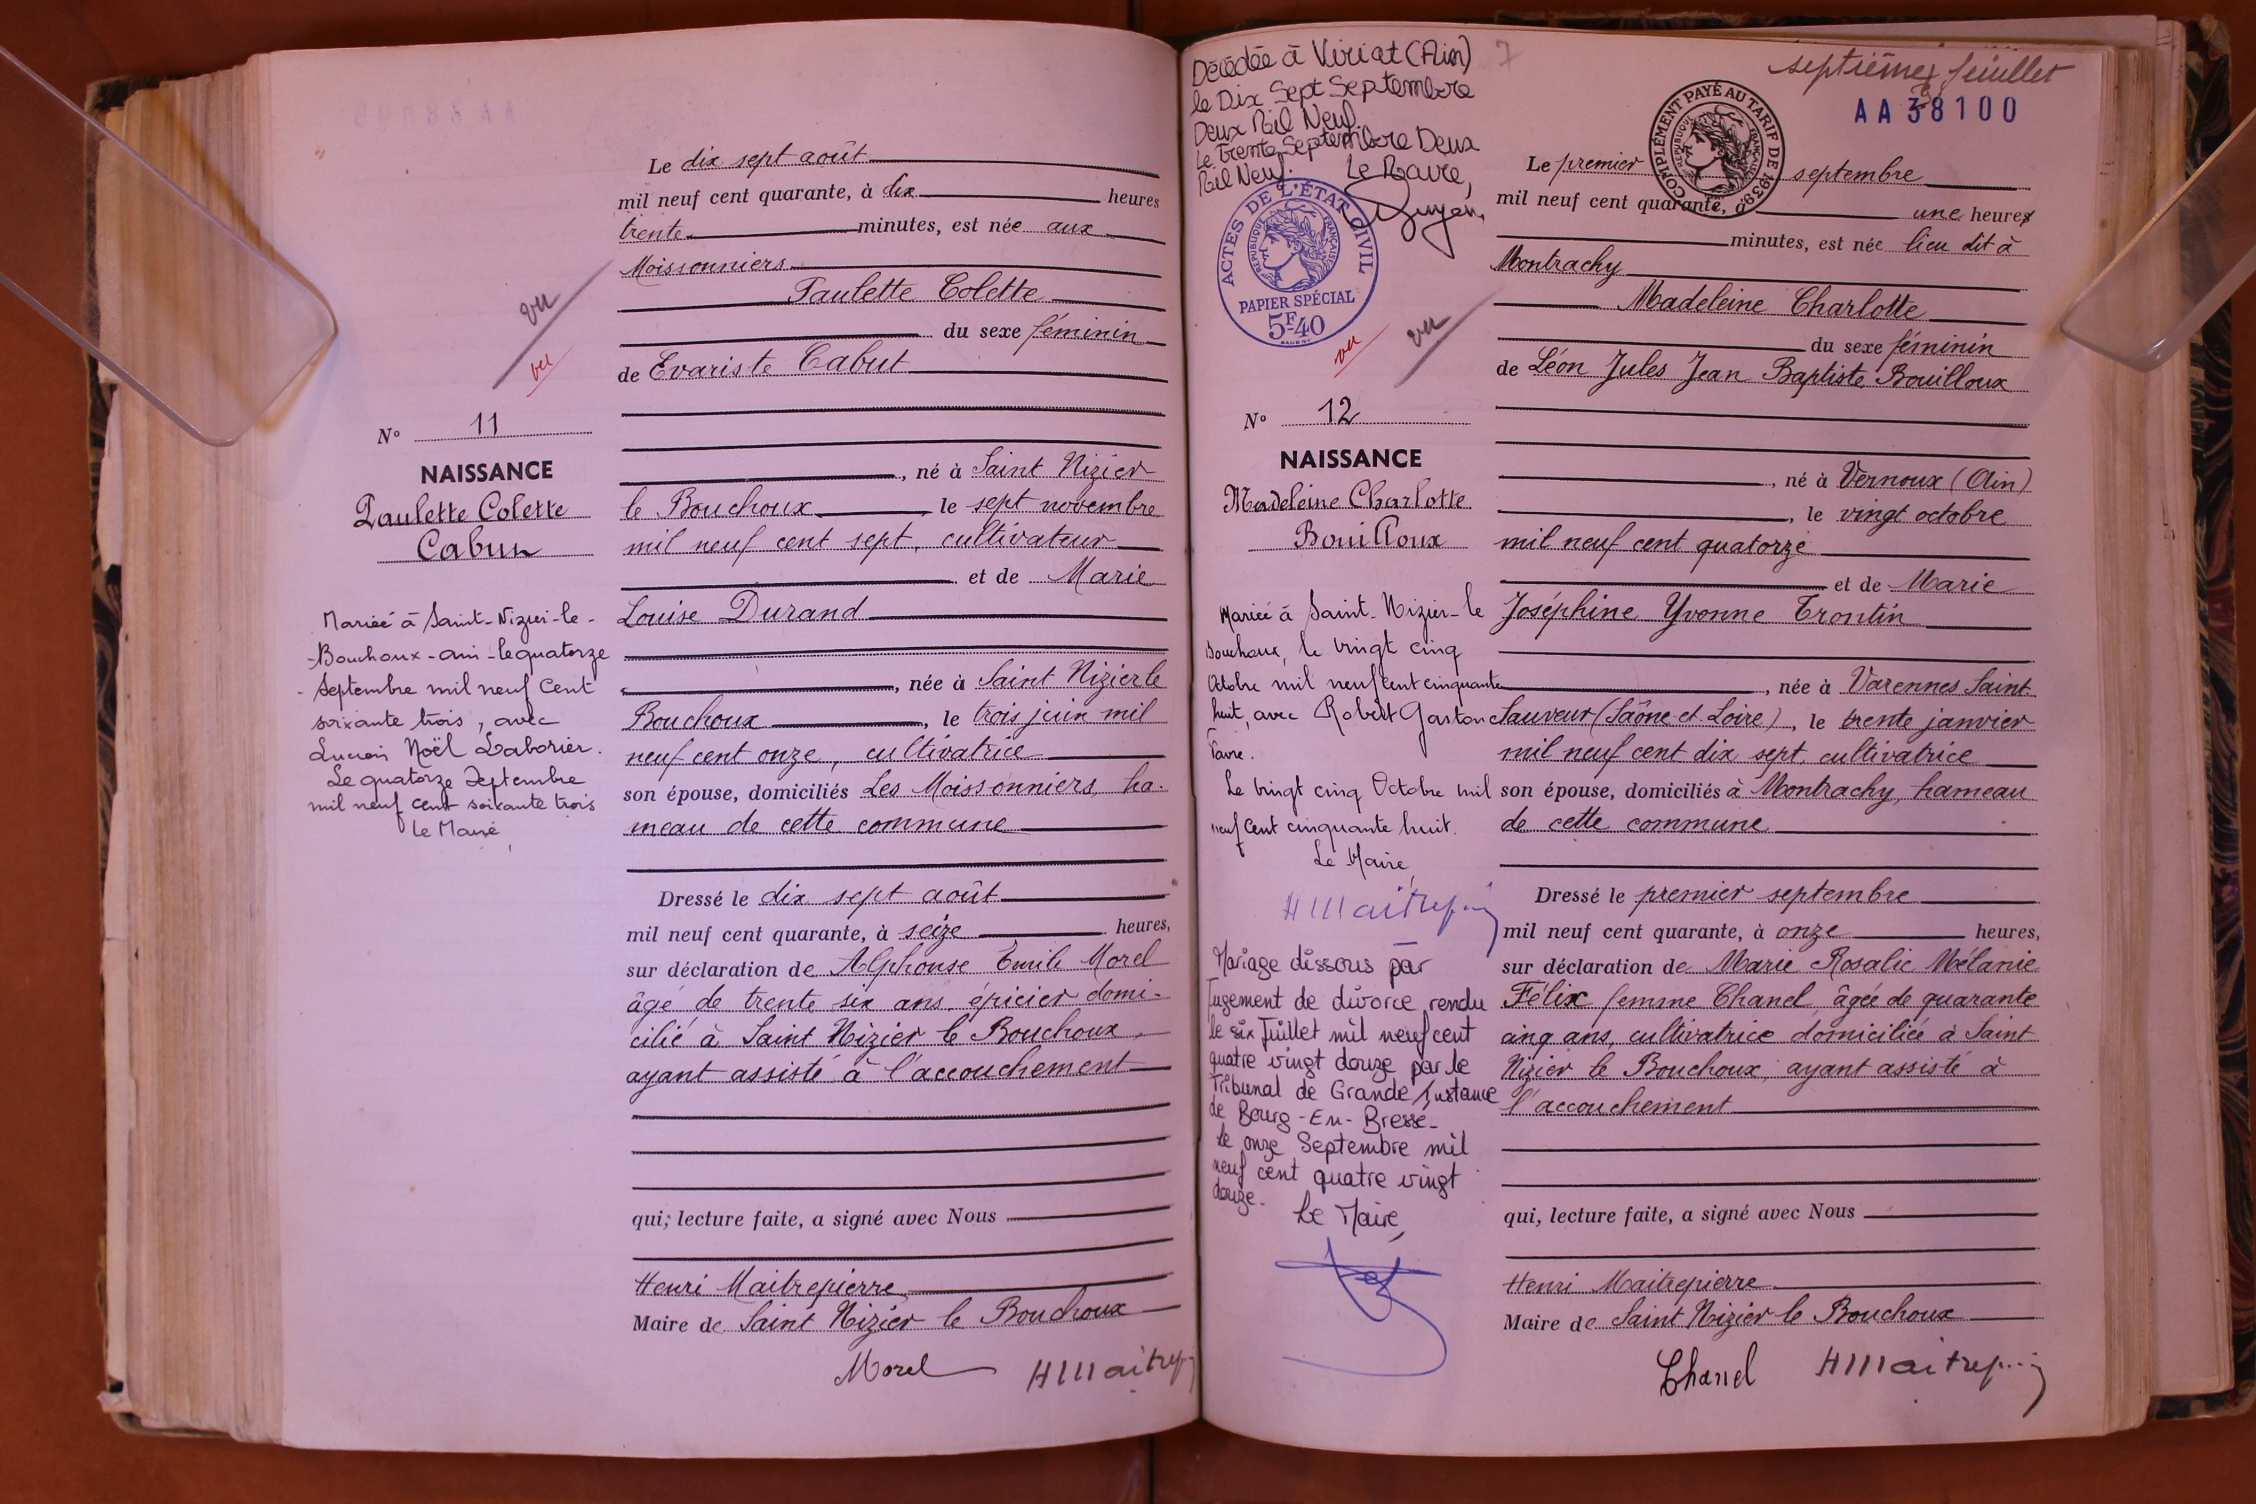 Le dix sept août
mil neuf cent quarante, à dix heures
trente minutes, est née aux
Moissonniers
Paulette Colette
du sexe féminin
de Evariste Cabut
né à Saint Nizier
le Bouchoux, le sept novembre
mil neuf cent sept, cultivateur
et de Marie
Louise Durand
, née à Saint Nizier le
Bouchoux, le trois juin mil
neuf cent onze, cultivatrice
son épouse, domiciliés Les Moissonniers, ha-
meau de cette commune
Dressé le dix sept août
mil neuf cent quarante, à seize heures,
sur déclaration de Alphonse Emile Morel
âgé de trente six ans, épicier domi-
cilié à Saint Nizier le Bouchoux,
ayant assisté à l'accouchement
qui, lecture faite, a signé avec Nous
Henri Maitrepierre
Maire de Saint Nizier le Bouchoux
Morel HMaitrep
vu
vu
N° 11
NAISSANCE
Paulette Colette
Cabut
Mariée à Saint-Nizier-le-
-Bouchoux-ain-le quatorze
-Septembre mil neuf Cent
soixante trois, avec
Lucien Noël Laborier.
Le quatorze Septembre
mil neuf cent soixante trois
Le Maire,
Décédée à Viriat (Ain)
le Dix Sept Septembre
Deux Mil Neuf.
Le Trente Septembre Deux
Mil Neuf. Le Maire,
ACTES DE L'ÉTAT CIVIL
RÉPUBLIQUE FRANÇAISE
PAPIER SPÉCIAL
5F40
vu
vu
N° 12
NAISSANCE
Madeleine Charlotte
Bouilloux
Mariée à Saint-Nizier-le
Bouchoux, le vingt cinq
Octobre mil neuf cent cinquante
huit, avec Robert Gaston
Favre.
Le vingt cinq Octobre mil
neuf Cent cinquante huit.
Le Maire,
HMaitrep
Mariage dissous par
Jugement de divorce rendu
le six Juillet mil neuf cent
quatre vingt douze par le
Tribunal de Grande Instance
de Bourg-En-Bresse-
Le onze Septembre mil
neuf cent quatre vingt
douze.
Le Maire,
7
septième feuillet
AA 38100
COMPLÉMENT PAYÉ AU TARIF DE 1939
RÉPUBLIQUE FRANÇAISE
Le premier septembre
mil neuf cent quarante, à une heure
minutes, est née lieu dit à
Montrachy
Madeleine Charlotte
du sexe féminin
de Léon Jules Jean Baptiste Bouilloux
, né à Vernoux (Ain)
, le vingt octobre
mil neuf cent quatorze
et de Marie
Joséphine Yvonne Trontin
, née à Varennes Saint
Sauveur (Saône et Loire), le trente janvier
mil neuf cent dix sept, cultivatrice
son épouse, domiciliés à Montrachy, hameau
de cette commune
Dressé le premier septembre
mil neuf cent quarante, à onze heures,
sur déclaration de Marie Rosalie Mélanie
Félix femme Chanel, âgée de quarante
cinq ans, cultivatrice domiciliée à Saint
Nizier le Bouchoux, ayant assisté à
l'accouchement
qui, lecture faite, a signé avec Nous
Henri Maitrepierre
Maire de Saint Nizier le Bouchoux
Chanel HMaitrep